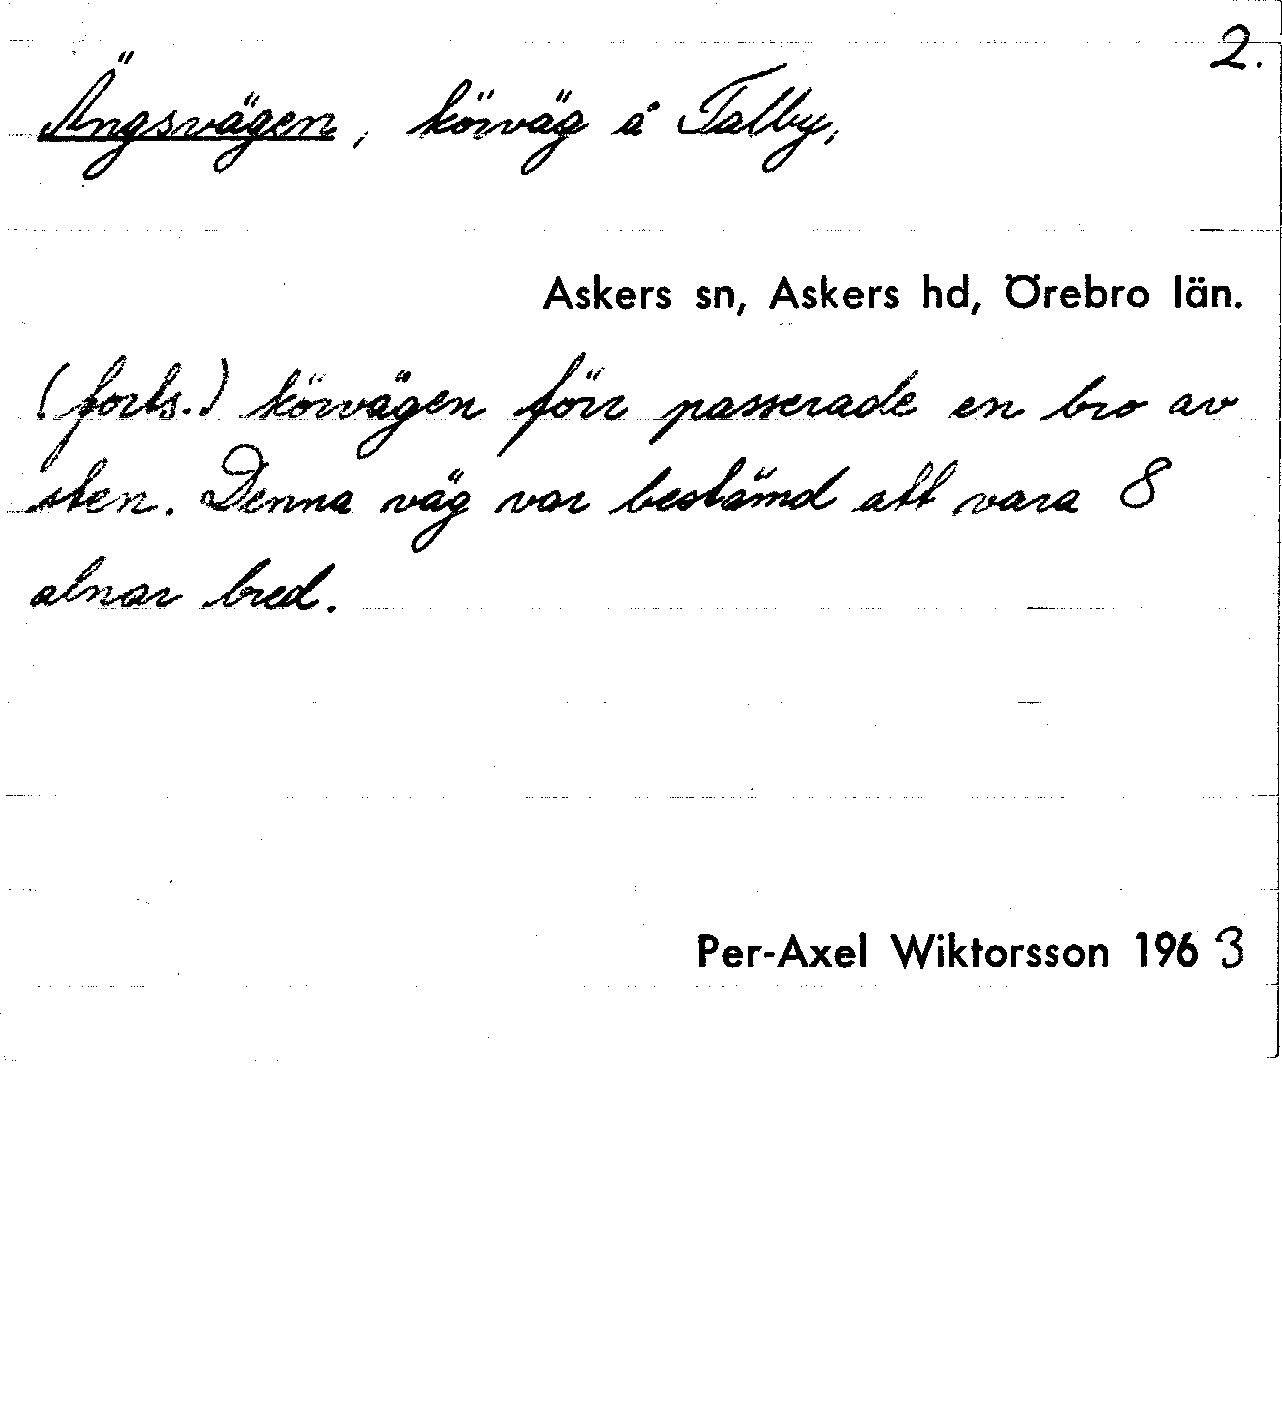 2.
Ängsvägen, körväg å Talby,
Askers sn, Askers hd, Örebro län.
(forts.) körvägen förr passerade en bro av
sten. Denna väg var bestämd att vara 8
alnar bred.
Per-Axel Wiktorsson 1963